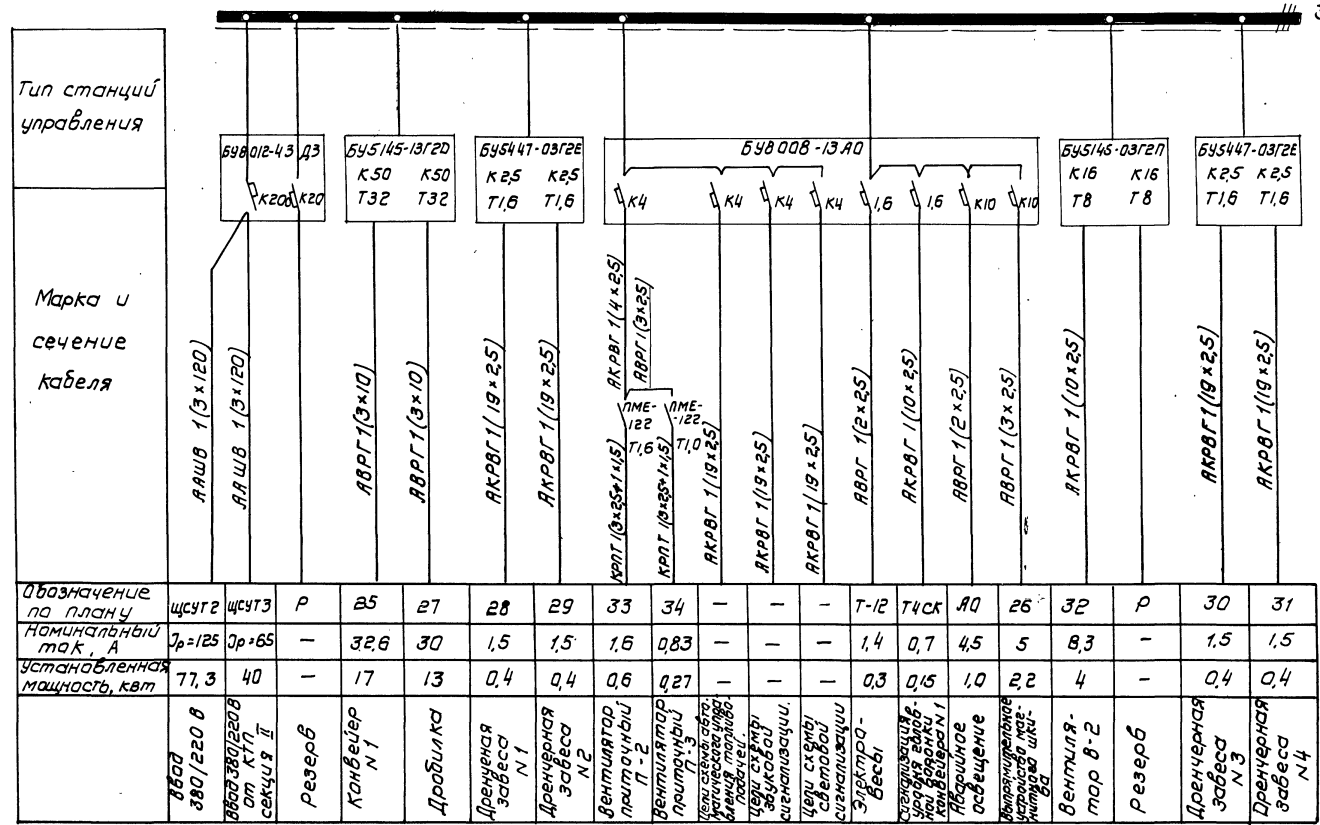 3
Тип станций
управления
БУ8012-43 Д3
К20б
К20
БУ5145-13Г2D
К50 К50
Т32 Т32
БУ5447-03Г2Е
К2,5 К2,5
Т1,6 Т1,6
БУ8008-13А0
К4
К4
К4
К4
1,6
1,6
К10
К10
БУ5145-03Г2П
К16 К16
Т8 Т8
БУ5447-03Г2Е
К2,5 К2,5
Т1,6 Т1,6
Марка и
сечение
кабеля
ААШВ 1(3×120)
ААШВ 1(3×120)
АВРГ1(3×10)
АВРГ1(3×10)
АКРВГ1(19×2,5)
АКРВГ1(19×2,5)
АКРВГ 1(4×2,5)
АВРГ1(3×2,5)
ПМЕ-
122
Т1,6
ПМЕ-
-122
Т1,0
КРПТ 1(3×2,5+1×1,5)
КРПТ 1(3×2,5+1×1,5)
АКРВГ 1(19×2,5)
АКРВГ 1(19×2,5)
АКРВГ 1(19×2,5)
АВРГ 1(2×2,5)
АКРВГ 1(10×2,5)
АВРГ1(2×2,5)
АВРГ1(3×2,5)
АКРВГ 1(10×2,5)
АКРВГ1(19×2,5)
АКРВГ1(19×2,5)
Обозначение
по плану
ЩСУТ2 ЩСУТ3 Р В5 27 28 29 33 34 – – – Т-12 Т4СК А0 26 32 Р 30 31
Номинальный
ток, А
Jр=125 Jр=65 – 32,6 30 1,5 1,5 1,6 0,83 – – – 1,4 0,7 4,5 5 8,3 – 1,5 1,5
Установленная
мощность, квт
77,3 40 – 17 13 0,4 0,4 0,6 0,27 – – – 0,3 0,15 1,0 2,2 4 – 0,4 0,4
Ввод
380/220 В
Ввод 380/220В
от КТП
секция II
Резерв
Конвейер
N1
Дробилка
Дренченая
завеса
N1
Дренчерная
завеса
N2
Вентилятор
приточный
П-2
Вентилятор
приточный
П-3
Цепи схемы авто-
матического упра-
вления топливо-
подачей.
Цепи схемы
звуковой
сигнализации.
Цепи схемы
световой
сигнализации
Электро-
весы
Сигнализация
уровня
конвейера N1
Аварийное
освещение
Выпрямительное
устройство маг-
нитного шки-
ва
Вентиля-
тор В-2
Резерв
Дренчерная
завеса
N3
Дренчерная
завеса
N4